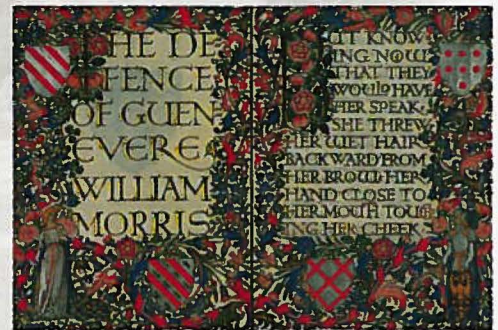 THE DE
FENCE
OF GUEN
EVERE
WILLIAM
MORRIS
BUT KNOW
ING NOW
THAT THEY
WOULD HAVE
HER SPEAK,
SHE THREW
HER WET HAIR
BACKWARD FROM
HER BROW, HER
HAND CLOSE TO
HER MOUTH TOUCH
ING HER CHEEK